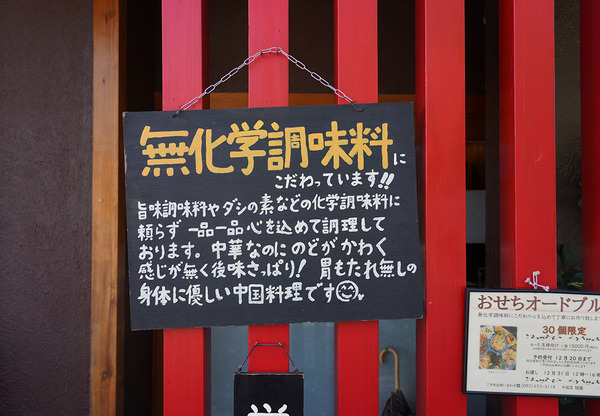 無化学調味料に
こだわっています!!
旨味調味料やダシの素などの化学調味料に
頼らず 一品一品 心を込めて調理して
おります。中華なのにのどがかわく
感じが無く後味さっぱり! 胃もたれ無しの
身体に優しい中国料理です
おせちオードブル
無化学調味料にこだわりに心を込めて丁寧にお作り致します
30個限定
予約受付 12月20日まで
お渡し 12月31日 12時〜16時